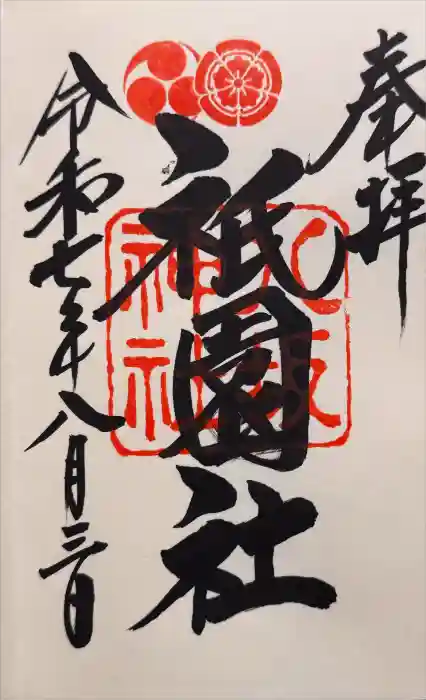 奉拝
祇園社
八坂神社
令和七年八月三日